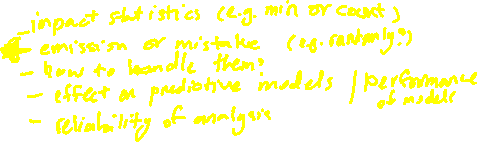 - impact statistics (e.g. min or count)
- emission or mistake (eg. randomly?)
- how to handle them?
- effect on predictive models / performance of models
- reliability of analysis